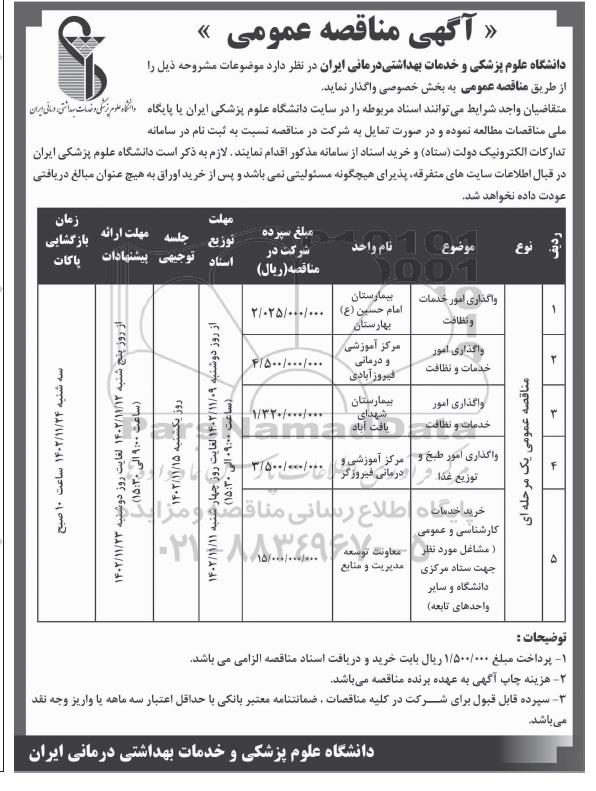 « آگهی مناقصه عمومی »
دانشگاه علوم پزشکی و خدمات بهداشتی درمانی ایران
دانشگاه علوم پزشکی و خدمات بهداشتی‌درمانی ایران در نظر دارد موضوعات مشروحه ذیل را
از طریق مناقصه عمومی به بخش خصوصی واگذار نماید.
متقاضیان واجد شرایط می‌توانند اسناد مربوطه را در سایت دانشگاه علوم پزشکی ایران یا پایگاه
ملی مناقصات مطالعه نموده و در صورت تمایل به شرکت در مناقصه نسبت به ثبت نام در سامانه
تدارکات الکترونیک دولت (ستاد) و خرید اسناد از سامانه مذکور اقدام نمایند . لازم به ذکر است دانشگاه علوم پزشکی ایران
در قبال اطلاعات سایت های متفرقه، پذیرای هیچگونه مسئولیتی نمی باشد و پس از خرید اوراق به هیچ عنوان مبالغ دریافتی
عودت داده نخواهد شد.
ردیف
نوع
موضوع
نام واحد
مبلغ سپرده
شرکت در
مناقصه(ریال)
مهلت
توزیع
اسناد
جلسه
توجیهی
مهلت ارائه
پیشنهادات
زمان
بازگشایی
پاکات
مناقصه عمومی یک مرحله ای
۱
واگذاری امور خدمات
ونظافت
بیمارستان
امام حسین (ع)
بهارستان
۲/۰۲۵/۰۰۰/۰۰۰
۲
واگذاری امور
خدمات و نظافت
مرکز آموزشی
و درمانی
فیروزآبادی
۴/۵۰۰/۰۰۰/۰۰۰
۳
واگذاری امور
خدمات و نظافت
بیمارستان
شهدای
یافت آباد
۱/۳۲۰/۰۰۰/۰۰۰
۴
واگذاری امور طبخ و
توزیع غذا
مرکز آموزشی و
درمانی فیروزگر
۳/۵۰۰/۰۰۰/۰۰۰
۵
خرید خدمات
کارشناسی و عمومی
( مشاغل مورد نظر
جهت ستاد مرکزی
دانشگاه و سایر
واحدهای تابعه)
معاونت توسعه
مدیریت و منابع
۱۵/۰۰۰/۰۰۰/۰۰۰
از روز دوشنبه ۱۴۰۲/۱۱/۰۹ لغایت روز چهارشنبه ۱۴۰۲/۱۱/۱۱
(ساعت ۰۹:۰۰ الی ۱۵:۳۰)
روز یکشنبه ۱۴۰۲/۱۱/۱۵
از روز پنج شنبه ۱۴۰۲/۱۱/۱۲ لغایت روز دوشنبه ۱۴۰۲/۱۱/۲۳
(ساعت ۹:۰۰ الی ۱۵:۳۰)
سه شنبه ۱۴۰۲/۱۱/۲۴ ساعت ۱۰ صبح
ParsNamadData
پایگاه اطلاع رسانی مناقصه و مزایده
۰۲۱-۸۸۳۴۹۶۷۰-۵
توضیحات :
۱- پرداخت مبلغ ۱/۵۰۰/۰۰۰ ریال بابت خرید و دریافت اسناد مناقصه الزامی می باشد.
۲- هزینه چاپ آگهی به عهده برنده مناقصه می‌باشد.
۳- سپرده قابل قبول برای شـــرکت در کلیه مناقصات ، ضمانتنامه معتبر بانکی با حداقل اعتبار سه ماهه یا واریز وجه نقد
می‌باشد.
دانشگاه علوم پزشکی و خدمات بهداشتی درمانی ایران